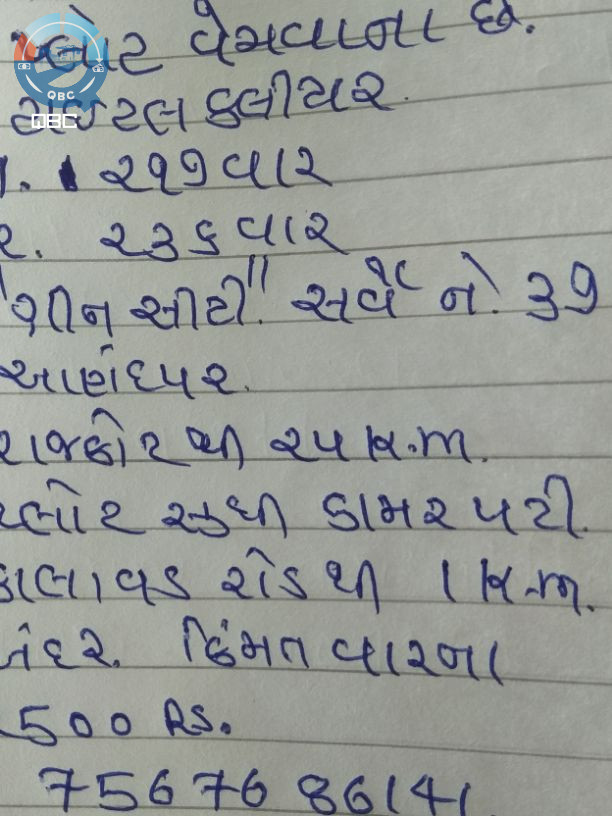 પ્લોટ વેચવાના છે.
QBC
QBC
ટાઈટલ કલીયર.
1. ૨૧૭ વાર
૨. ૨૩૬ વાર
"ગ્રીન સીટી" સર્વે નં. ૩૭
આણંદપર.
રાજકોટ થી ૨૫ K.m.
પ્લોટ સુધી ડામર પટી.
કાલાવડ રોડ થી 1 K.m.
અંદર. કિંમત વારના
500 RS.
75676 86141.